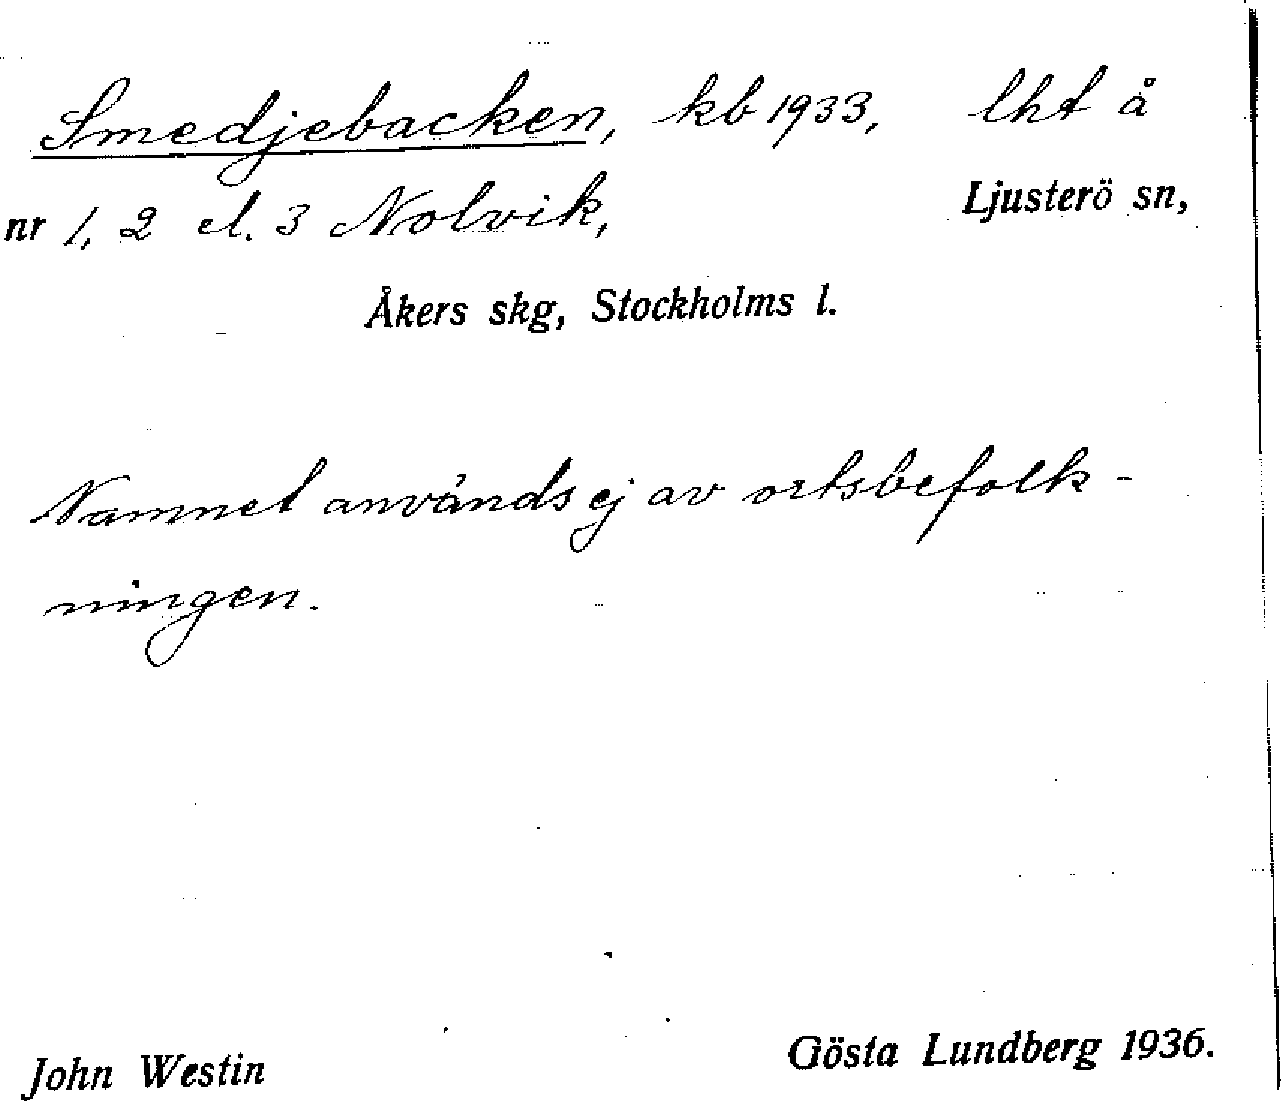 Smedjebacken, kb 1933, lht å
nr 1, 2 el. 3 Nolvik, Ljusterö sn,
Åkers skg, Stockholms l.
Namnet används ej av ortsbefolk-
ningen.
John Westin Gösta Lundberg 1936.